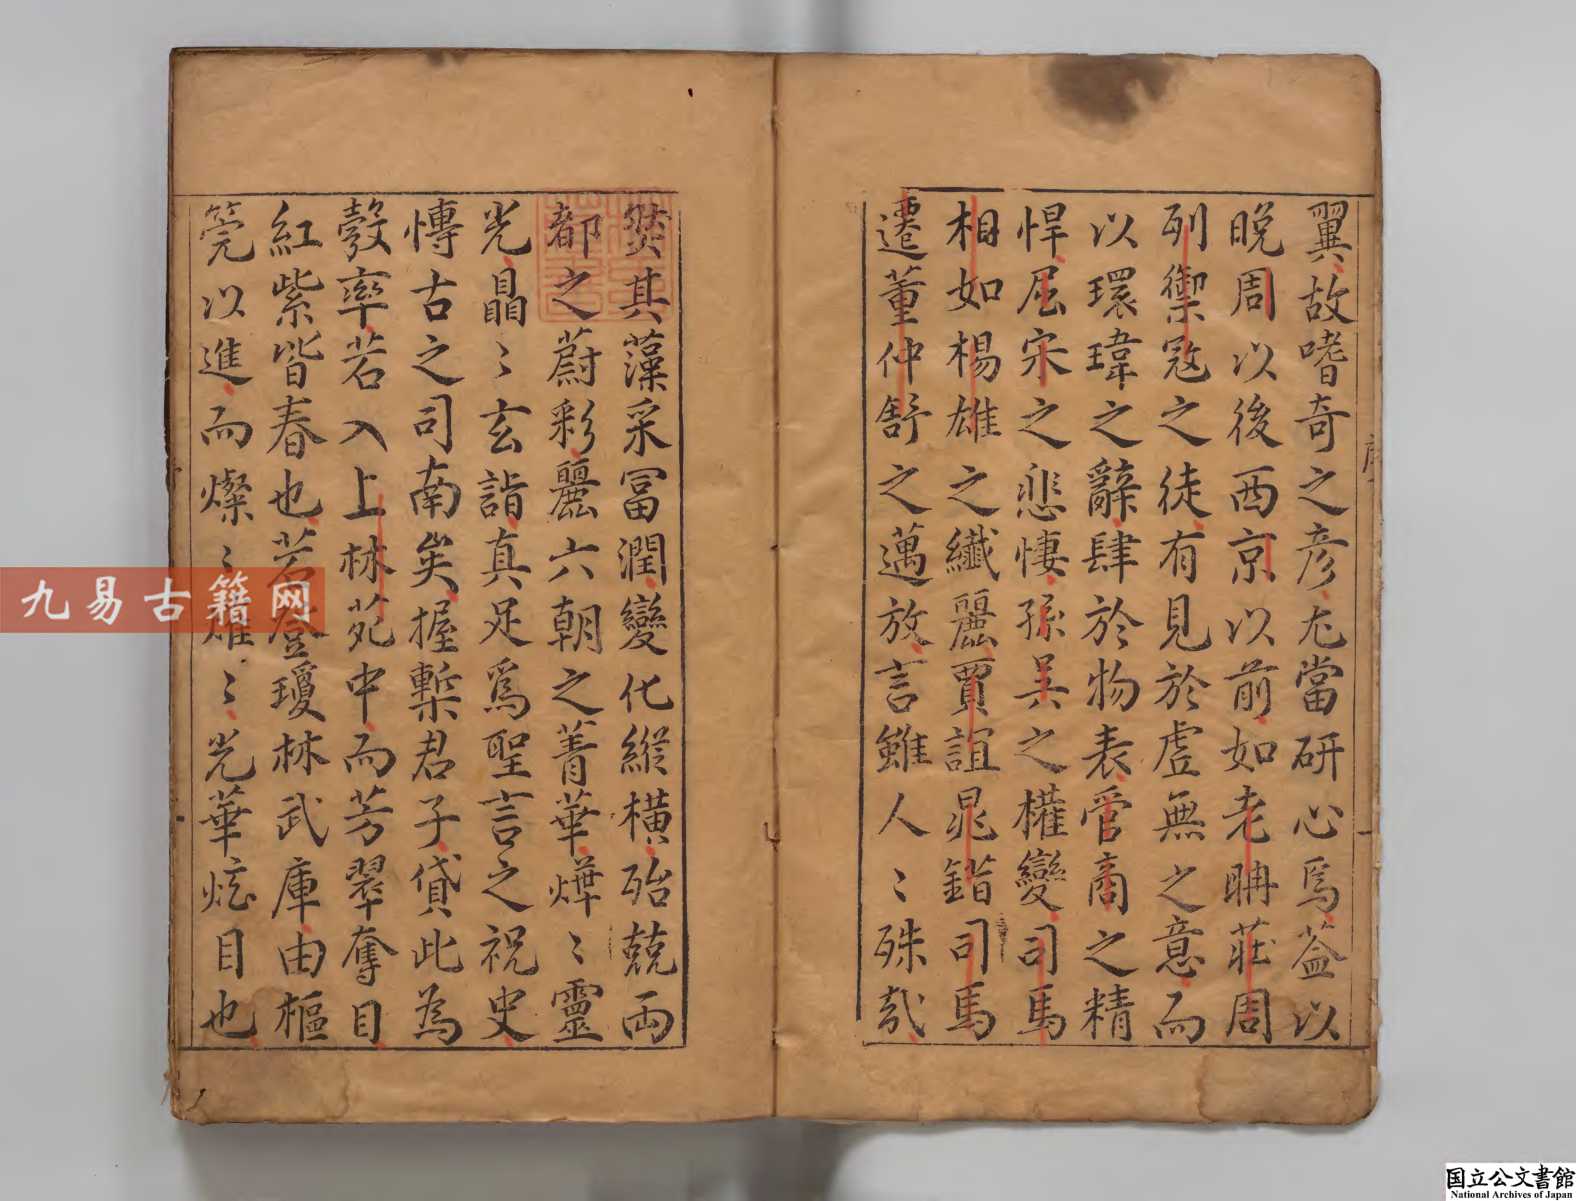 翼故嗜奇之彦尤當研心焉葢以
晩周以後西京以前如老聃莊周
列禦冦之徒有見於虛無之意而
以環瑋之辭肆於物表管商之精
悍屈宋之悲悽孫吴之權變司馬
相如楊雄之纎麗賈誼晁錯司馬
遷董仲舒之邁放言雖人〻殊㢤
然其藻采冨潤變化縱横殆兢兩
都之蔚彩麗六朝之菁華燁〻靈
光晶〻玄詣真足爲聖言之祝史
愽古之司南矣握槧君子貸此為
彀率若入上林苑中而芳翠奪目
紅紫皆春也若登瓊林武庫由樞
筦以進而燦〻雄〻光華炫目也
序
一
九易古籍网
国立公文書館
National Archives of Japan